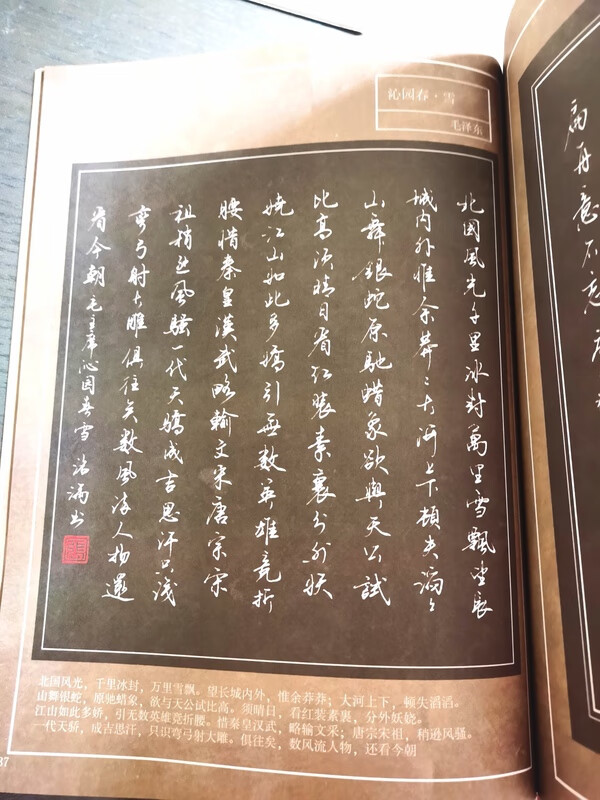 沁园春·雪
毛泽东
北國風光千里冰封萬里雪飄望長
城内外惟余莽〻大河上下頓失滔〻
山舞銀蛇原馳蜡象欲與天公試
比高须晴日看红装素裹分外妖
娆江山如此多嬌引無数英雄竞折
腰惜秦皇漢武略輸文采唐宗宋
祖稍逊風騷一代天驕成吉思汗只識
弯弓射大雕俱往矣数風流人物還
看今朝毛主席沁园春雪 洪满书
北国风光，千里冰封，万里雪飘。望长城内外，惟余莽莽；大河上下，顿失滔滔。
山舞银蛇，原驰蜡象，欲与天公试比高。须晴日，看红装素裹，分外妖娆。
江山如此多娇，引无数英雄竞折腰。惜秦皇汉武，略输文采；唐宗宋祖，稍逊风骚。
一代天骄，成吉思汗，只识弯弓射大雕。俱往矣，数风流人物，还看今朝